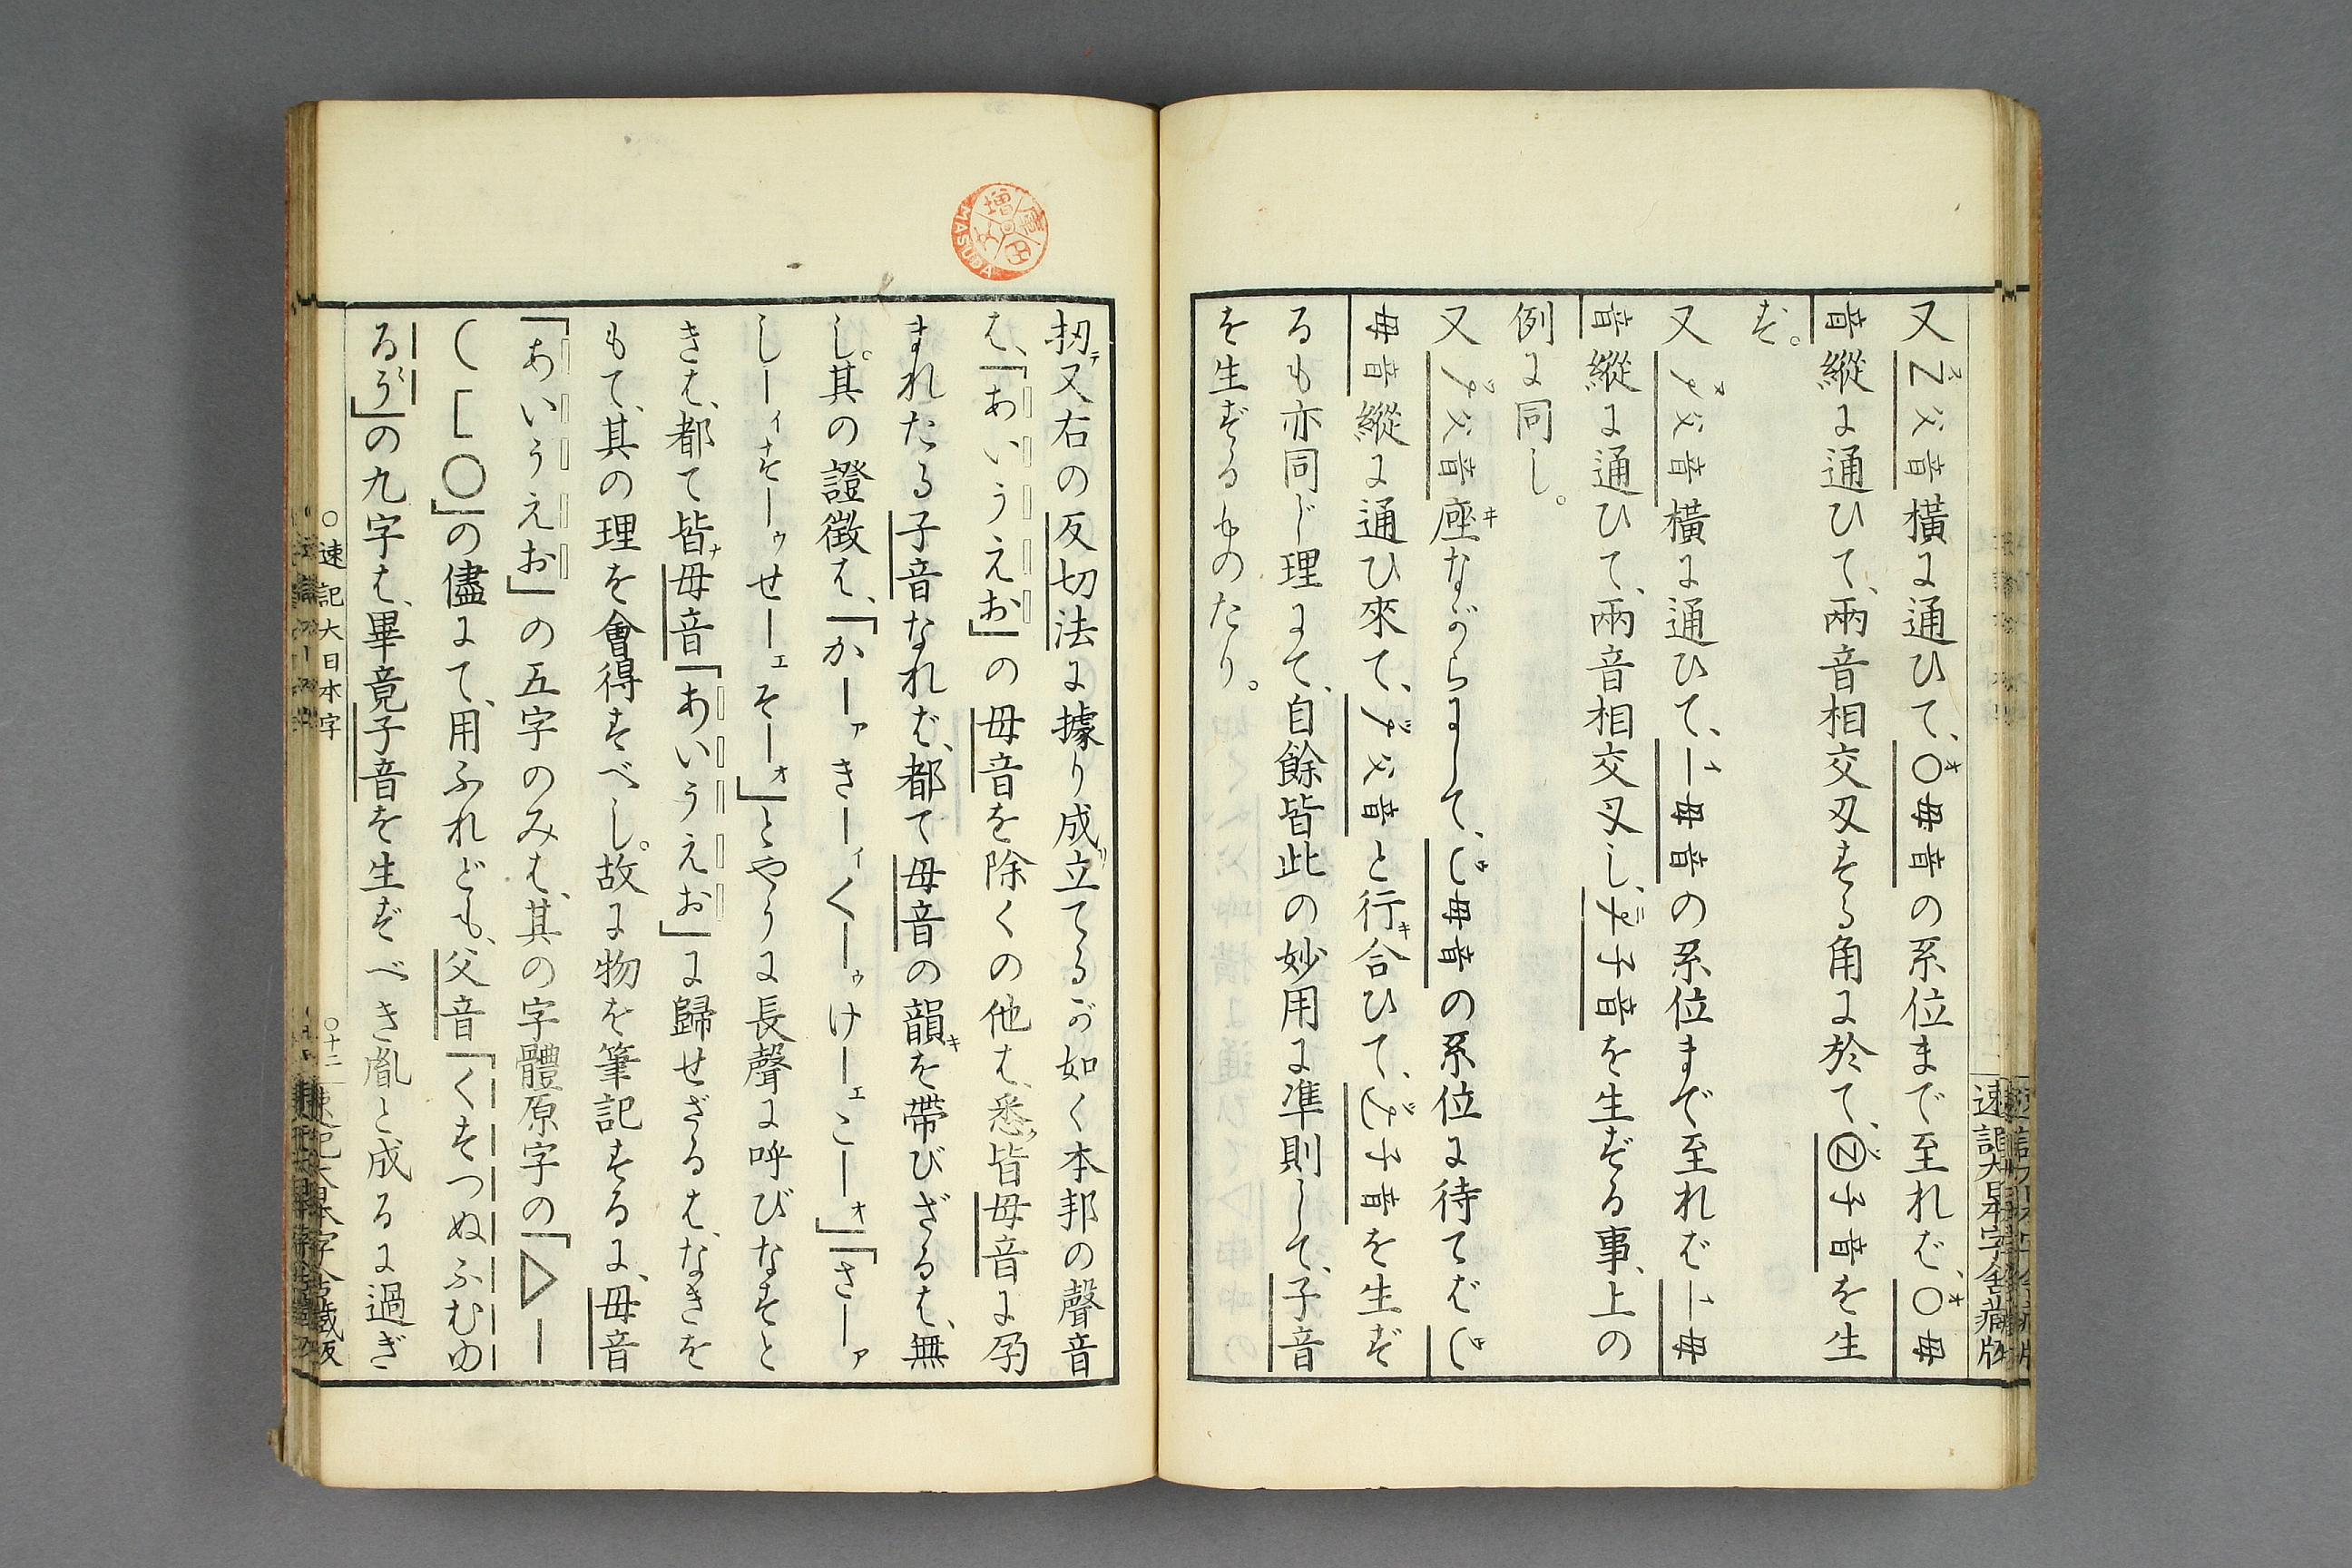 又Z父音橫に通ひて、〇母音の系位まで至れば、〇母
音縱に通ひて、兩音相交叉する角に於て、Ⓩ子音を生
ず。
又父音橫に通ひて、母音の系位まで至れば母
音縱に通ひて、兩音相交叉し、子音を生ずる事、上の
例に同し。
又父音座ながらにして、母音の系位に待てば
母音縱に通ひ來て、父音と行合ひて、子音を生ず
るも亦同じ理にて、自餘皆此の妙用に凖則して、子音
を生ずるものたり。
扨又右の反切法に據り成立てるが如く本邦の聲音
は、「あいうえお」の母音を除くの他は、悉皆母音に孕
まれたる子音なれば、都て母音の韻を帶びざるは、無
し。其の證徵は、「かーァきーィくーゥけーェこーォ」「さーァ
しーィすーゥせーェそーォ」とやうに長聲に呼びなすと
きは、都て皆母音「あいうえお」に歸せざるは、なきを
もて、其の理を會得すべし。故に物を筆記するに、母音
「あいうえお」の五字のみは、其の字體原字の「▷ー
( [ 〇」の儘にて、用ふれども、父音「くすつぬふむゆ
るう」の九字は、畢竟子音を生ずべき胤と成るに過ぎ
〇速記大日本字
〇十二
增田
MASUDA